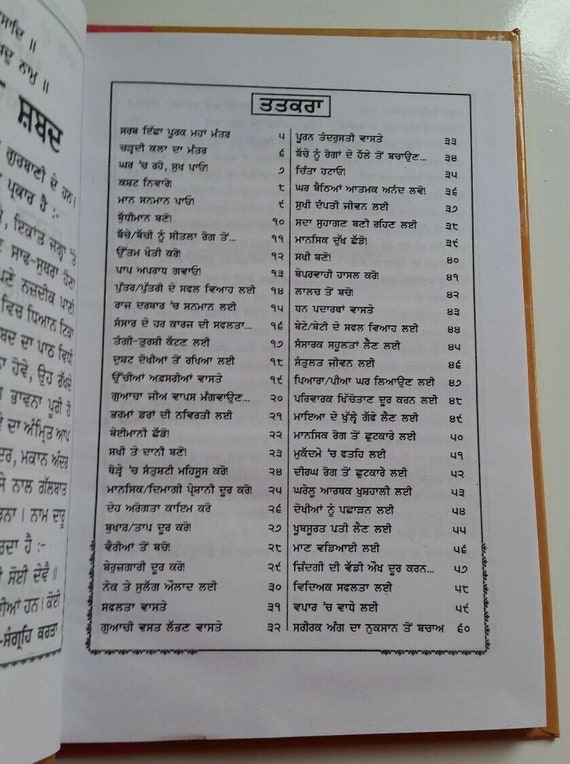 ਸ਼ਬਦ
ਤਤਕਰਾ
ਸਰਬ ਇੱਛਾ ਪੂਰਕ ਮਹਾਂ ਮੰਤਰ ੫
ਚੜ੍ਹਦੀ ਕਲਾ ਦਾ ਮੰਤਰ ੬
ਘਰ 'ਚ ਰਹੋ, ਸੁਖ ਪਾਓ! ੭
ਕਸ਼ਟ ਨਿਵਾਰੋ! ੮
ਮਾਨ ਸਨਮਾਨ ਪਾਓ! ੯
ਬੁੱਧੀਮਾਨ ਬਣੋ! ੧੦
ਬੱਚੇ/ਬੱਚੀ ਨੂੰ ਸੀਤਲਾ ਰੋਗ ਤੋਂ... ੧੧
ਉੱਤਮ ਖੇਤੀ ਕਰੋ! ੧੨
ਪਾਪ ਅਪਰਾਧ ਗਵਾਓ! ੧੩
ਪੁੱਤਰ/ਪੁੱਤਰੀ ਦੇ ਸਫਲ ਵਿਆਹ ਲਈ ੧੪
ਰਾਜ ਦਰਬਾਰ 'ਚ ਸਨਮਾਨ ਲਈ ੧੫
ਸੰਸਾਰ ਦੇ ਹਰ ਕਾਰਜ ਦੀ ਸਫਲਤਾ... ੧੬
ਤੰਗੀ-ਤੁਰਸ਼ੀ ਕੱਟਣ ਲਈ ੧੭
ਦੁਸ਼ਟ ਦੋਖੀਆਂ ਤੋਂ ਰਖਿਆ ਲਈ ੧੮
ਉੱਚੀਆਂ ਅਫ਼ਸਰੀਆਂ ਵਾਸਤੇ ੧੯
ਗੁਆਚਾ ਜੀਅ ਵਾਪਸ ਮੰਗਵਾਉਣ... ੨੦
ਭਰਮਾਂ ਡਰਾਂ ਦੀ ਨਵਿਰਤੀ ਲਈ ੨੧
ਬੇਈਮਾਨੀ ਛੱਡੋ! ੨੨
ਸਖੀ ਤੇ ਦਾਨੀ ਬਣੋ! ੨੩
ਥੋੜ੍ਹੇ 'ਚ ਸੰਤੁਸ਼ਟੀ ਮਹਿਸੂਸ ਕਰੋ! ੨੪
ਮਾਨਸਿਕ/ਦਿਮਾਗੀ ਪ੍ਰੇਸ਼ਾਨੀ ਦੂਰ ਕਰੋ! ੨੫
ਦੇਹ ਅਰੋਗਤਾ ਕਾਇਮ ਕਰੋ ੨੬
ਬੁਖਾਰ/ਤਾਪ ਦੂਰ ਕਰੋ! ੨੭
ਵੈਰੀਆਂ ਤੋਂ ਬਚੋ! ੨੮
ਬੇਰੁਜ਼ਗਾਰੀ ਦੂਰ ਕਰੋ! ੨੯
ਨੇਕ ਤੇ ਸੁਲੱਗ ਔਲਾਦ ਲਈ ੩੦
ਸਫਲਤਾ ਵਾਸਤੇ ੩੧
ਗੁਆਚੀ ਵਸਤ ਲੱਭਣ ਵਾਸਤੇ ੩੨
ਪੂਰਨ ਤੰਦਰੁਸਤੀ ਵਾਸਤੇ ੩੩
ਬੱਚੇ ਨੂੰ ਰੋਗਾਂ ਦੇ ਹੱਲੇ ਤੋਂ ਬਚਾਉਣ... ੩੪
ਚਿੰਤਾ ਹਟਾਓ! ੩੫
ਘਰ ਬੈਠਿਆਂ ਆਤਮਕ ਅਨੰਦ ਲਵੋ! ੩੬
ਸੁਖੀ ਦੰਪਤੀ ਜੀਵਨ ਲਈ ੩੭
ਸਦਾ ਸੁਹਾਗਣ ਬਣੀ ਰਹਿਣ ਲਈ ੩੮
ਮਾਨਸਿਕ ਦੁੱਖ ਛੱਡੋ! ੩੯
ਸਖੀ ਬਣੋ! ੪੦
ਬੇਪਰਵਾਹੀ ਹਾਸਲ ਕਰੋ! ੪੧
ਲਾਲਚ ਤੋਂ ਬਚੋ! ੪੨
ਧਨ ਪਦਾਰਥਾਂ ਵਾਸਤੇ ੪੩
ਬੇਟੇ/ਬੇਟੀ ਦੇ ਸਫਲ ਵਿਆਹ ਲਈ ੪੪
ਸੰਸਾਰਕ ਸਹੂਲਤਾਂ ਲੈਣ ਲਈ ੪੫
ਸੰਤੁਲਤ ਜੀਵਨ ਲਈ ੪੬
ਪਿਆਰਾ/ਪੀਆ ਘਰ ਲਿਆਉਣ ਲਈ ੪੭
ਪਰਿਵਾਰਕ ਖਿੱਚੋਤਾਣ ਦੂਰ ਕਰਨ ਲਈ ੪੮
ਮਾਇਆ ਦੇ ਖੁੱਲ੍ਹੇ ਗੱਫੇ ਲੈਣ ਲਈ ੪੯
ਮਾਨਸਿਕ ਰੋਗ ਤੋਂ ਛੁਟਕਾਰੇ ਲਈ ੫੦
ਮੁਕੱਦਮੇ 'ਚ ਫਤਹਿ ਲਈ ੫੧
ਦੀਰਘ ਰੋਗ ਤੋਂ ਛੁਟਕਾਰੇ ਲਈ ੫੨
ਘਰੇਲੂ ਆਰਥਕ ਖੁਸ਼ਹਾਲੀ ਲਈ ੫੩
ਦੋਖੀਆਂ ਨੂੰ ਪਛਾੜਨ ਲਈ ੫੪
ਖੂਬਸੂਰਤ ਪਤੀ ਲੈਣ ਲਈ ੫੫
ਮਾਣ ਵਡਿਆਈ ਲਈ ੫੬
ਜ਼ਿੰਦਗੀ ਦੀ ਵੱਡੀ ਔਖ ਦੂਰ ਕਰਨ... ੫੭
ਵਿਦਿਅਕ ਸਫਲਤਾ ਲਈ ੫੮
ਵਪਾਰ 'ਚ ਵਾਧੇ ਲਈ ੫੯
ਸਰੀਰਕ ਅੰਗ ਦਾ ਨੁਕਸਾਨ ਤੋਂ ਬਚਾਅ ੬੦